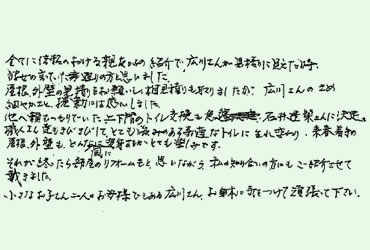 全てに信頼のおける親友からの紹介で、広川さんが見積りに見えた時、
彼女の言っていた通りの方と思いました。
屋根、外壁の見積りをお願いし、相見積りも取りましたが、広川さんのきめ
細やかさと、援動には感心しました。
他へ頼むつもりでいた、上下階のトイレ交換も急遽、石井建築さんに決定。
職人さん達もきびきびして、とても温かみのある素適なトイレに生れ変わり、来春着手の
屋根、外壁も、どんな風に変身するかとても楽しみです。
それが終ったら部屋のリフォームもと思いながら、私の知り合いの方にもご紹介させて
戴きました。
小さなお子さん二人のお母様でもある広川さん、お身体に気をつけて頑張って下さい。